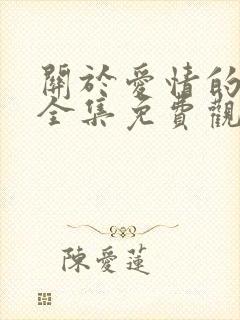 關於愛情的
全集免費觀
陳愛蓮